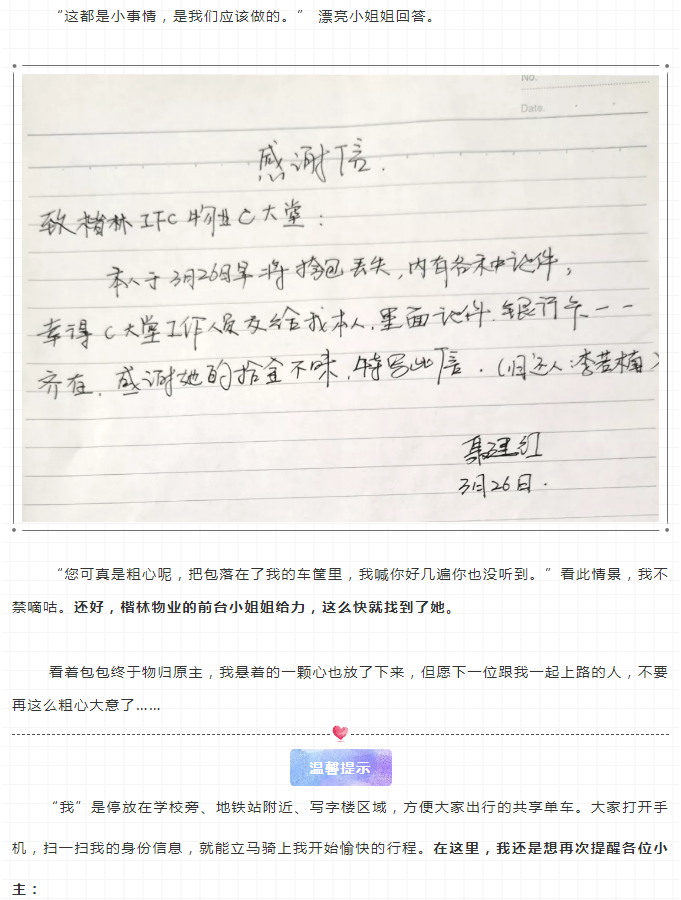 “这都是小事情，是我们应该做的。” 漂亮小姐姐回答。
No.
Date.
感谢信.
致楷林IFC物业C大堂：
本人于3月26日早将挎包丢失，内有各种证件，
幸得C大堂工作人员交给我本人，里面证件、银行卡一一
齐在，感谢她的拾金不昧，特写此信．（归还人：李若楠）
3月26日．
“您可真是粗心呢，把包落在了我的车筐里，我喊你好几遍你也没听到。”看此情景，我不
禁嘀咕。还好，楷林物业的前台小姐姐给力，这么快就找到了她。
看着包包终于物归原主，我悬着的一颗心也放了下来，但愿下一位跟我一起上路的人，不要
再这么粗心大意了……
温馨提示
“我”是停放在学校旁、地铁站附近、写字楼区域，方便大家出行的共享单车。大家打开手
机，扫一扫我的身份信息，就能立马骑上我开始愉快的行程。在这里，我还是想再次提醒各位小
主：